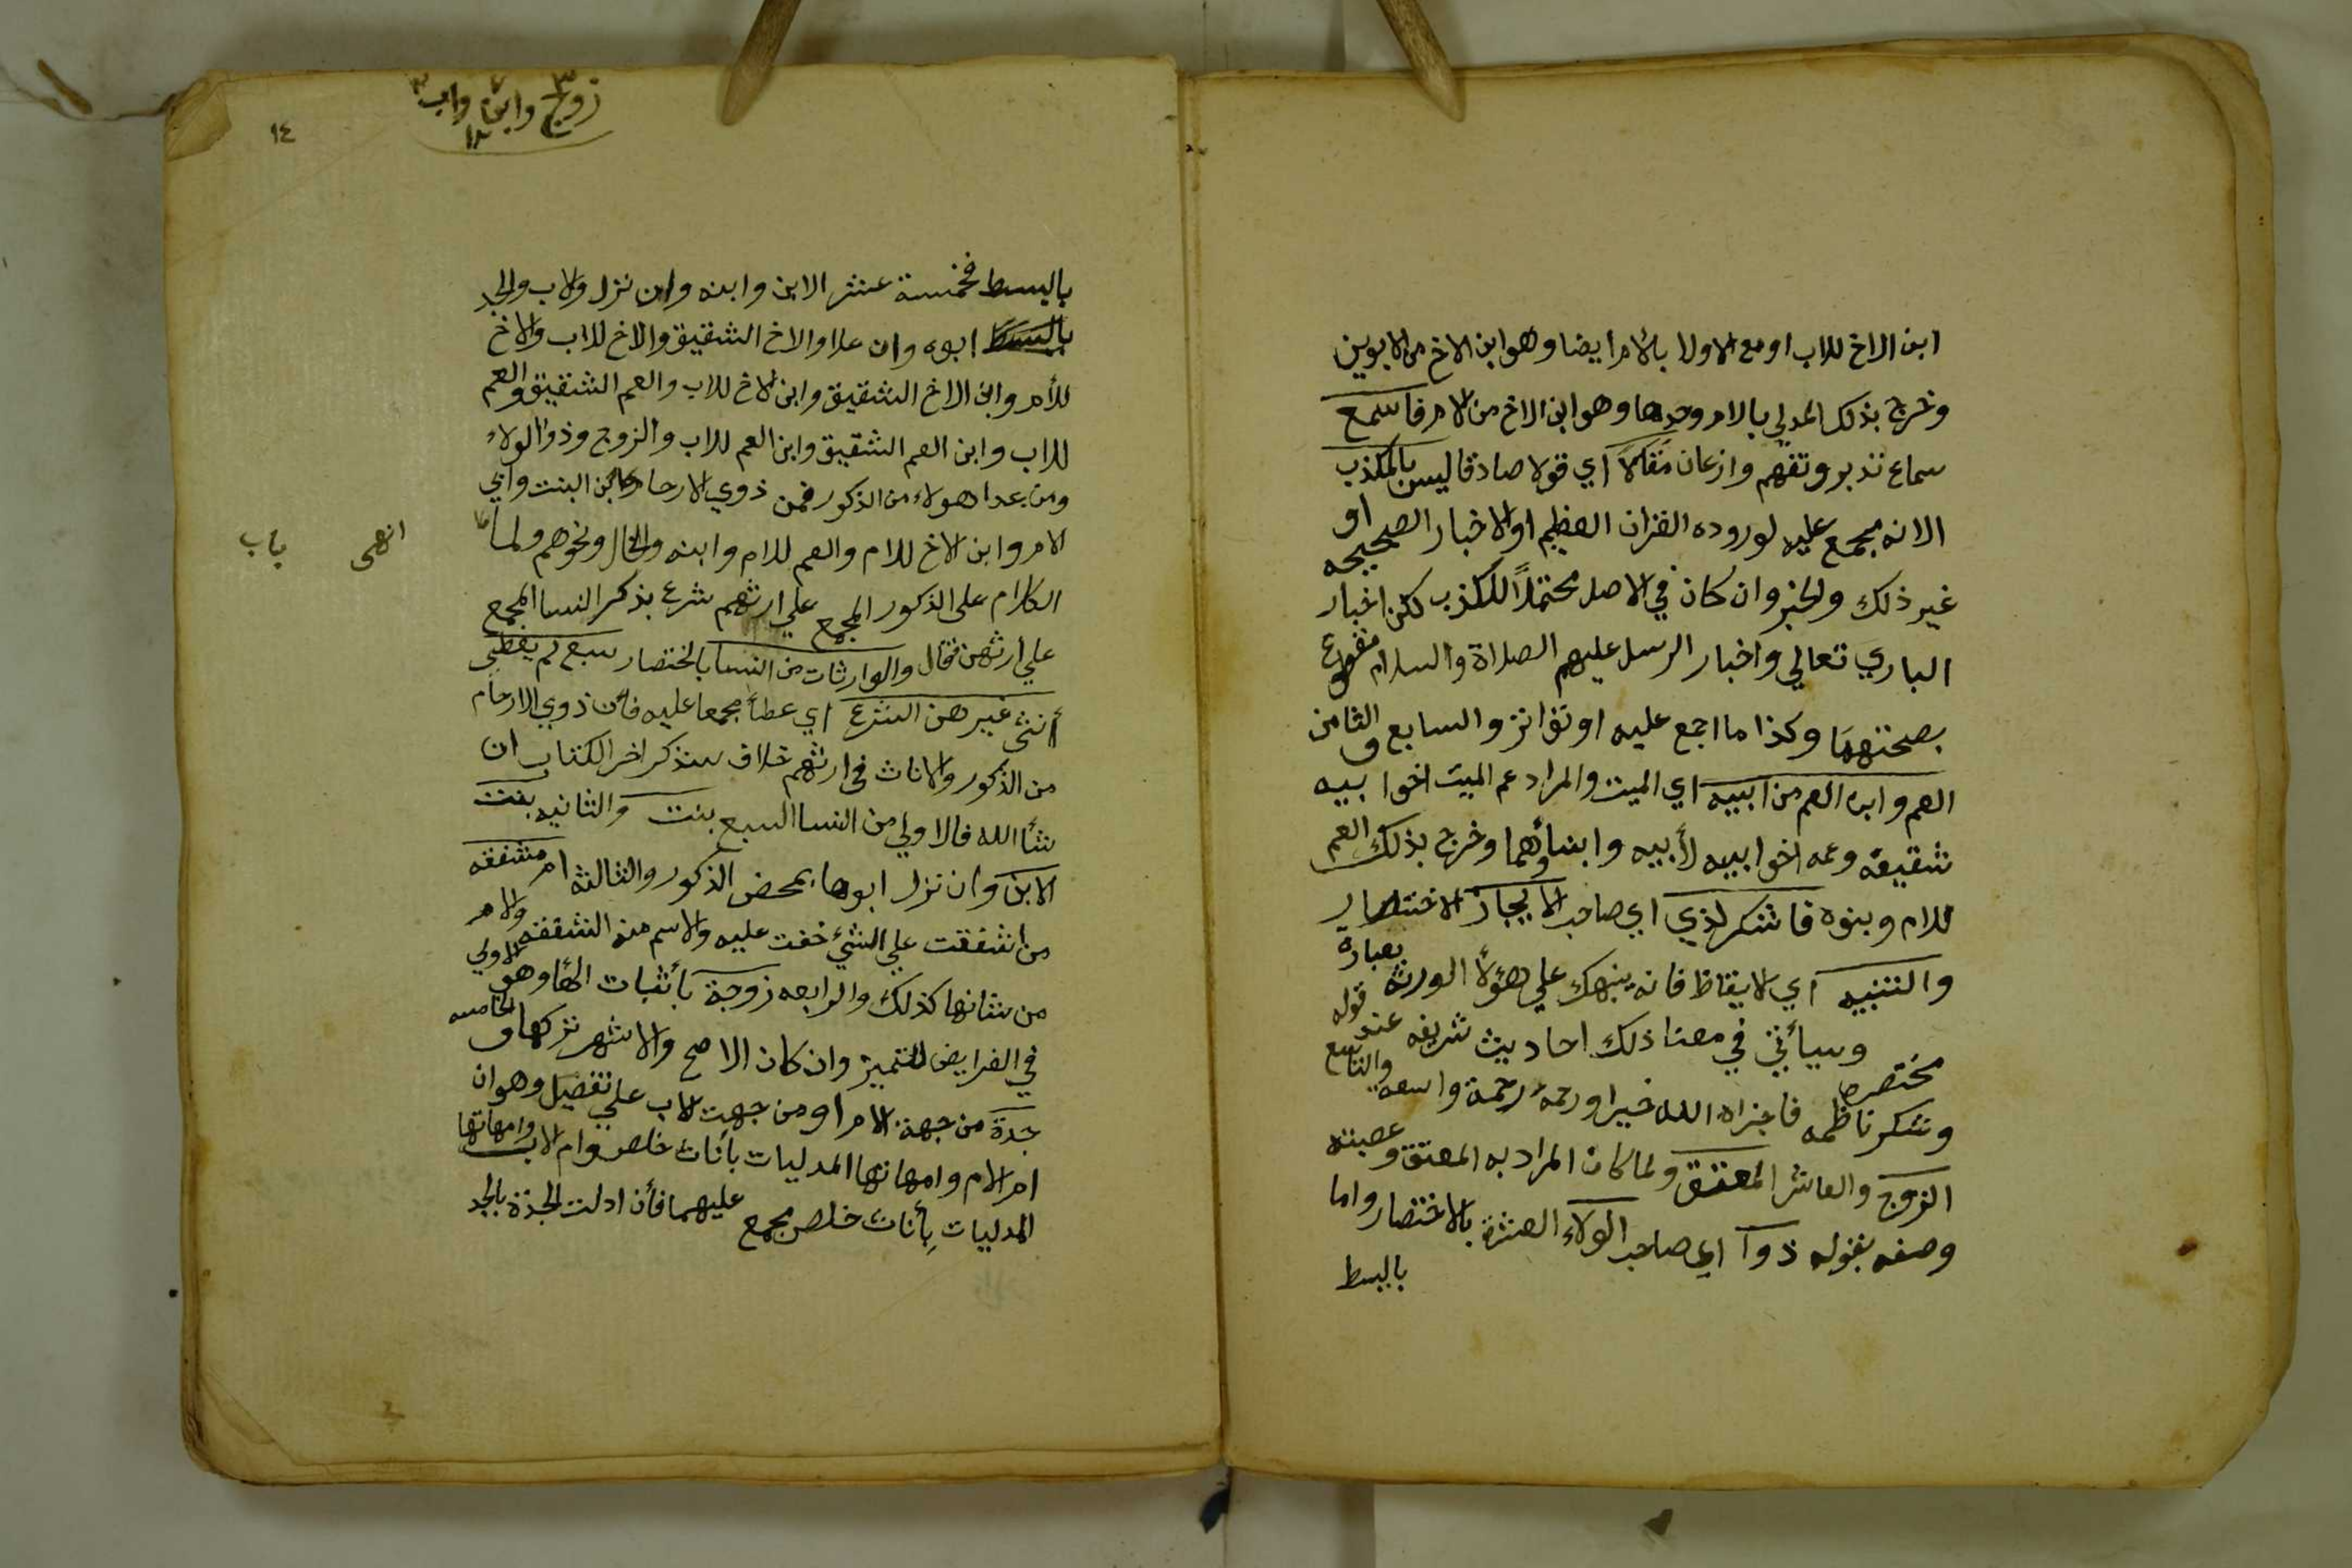 ابن الاخ للاب او مع الاولا بالام ايضا وهو ابن الاخ من الابوين
وخرج بذلك المدلي بالام وحدها وهو ابن الاخ من الام فاسمع
سماع تدبر وتفهم واذعان مقالاً اي قولا صادقا ليس بالمكذب
الانه مجمع عليه لوروده القران العظيم او الاخبار الصحيحه او
غير ذلك والخبر وان كان في الاصل محتملاً للكذب لكن اخبار
الباري تعالي واخبار الرسل عليهم الصلاة والسلام مقطوع
بصحتهما وكذا ما اجمع عليه او تواتر والسابع والثامن
العم وابن العم من ابيه اي الميت والمراد عم الميت اخوا بيه
شقيقه وعمه اخوا بيه لأبيه وابناؤهما وخرج بذلك العم
للام وبنوه فاشكر لذي اي صاحب الايجاز الاختصار
والتنبيه اي الايقاظ فانه ينبهك علي هؤلأ الورثه بعبارة
مختصره وسيأتي في معنا ذلك احاديث شريفه عند قوله
وشكر ناظمه فاجزاه الله خيرا ورحمه رحمة واسعه والتاسع
الزوج والعاشر المعتق ولما كان المراد به المعتق وعصبته
وصفه بقوله ذوا اي صاحب الولاء العشرة بالاختصار واما
بالبسط
١٤
زوج وابن واب
١٢
بالبسط فخمسة عشر الابن وابنه وان نزل والاب والجد
بالبسط ابوه وان علا والاخ الشقيق والاخ للاب والاخ
للأم وابن الاخ الشقيق وابن الاخ للاب والعم الشقيق والعم
للاب وابن العم الشقيق وابن العم للاب والزوج وذو الولاء
ومن عدا هولاء من الذكور فمن ذوي الارحام كابن البنت وابي
الام وابن الاخ للام والعم للام وابنه والخال ونحوهم ولما
انهى باب
الكلام على الذكور المجمع علي ارثهم شرع بذكر النسا المجمع
علي ارثهن فقال والوارثات من النسا بالاختصار سبع لم يعطي
أنثى غيرهن الشرع اي عطأ مجمعا عليه فأن ذوي الارحام
من الذكور والاناث في ارثهم خلاف سنذكر اخر الكتاب ان
شأ الله فالاولي من النسا السبع بنت والثانيه بنت
الابن وان نزل ابوها بمحض الذكور والثالثه ام مشفقه
من اشفقت علي الشئ خفت عليه والاسم منه الشفقه والام
من شانها كذلك والرابعه زوجة بأثبات الهأ وهو الاولي
في الفرايض للتمييز وان كان الاصح والاشهر تركها والخامسه
جدة من جهة الام او من جهت الاب علي تفصيل وهو ان
ام الام وامهاتها المدليات بأناث خلص وام الاب وامهاتها
المدليات بأناث خلص مجمع عليهما فأن ادلت الجدة بالجد